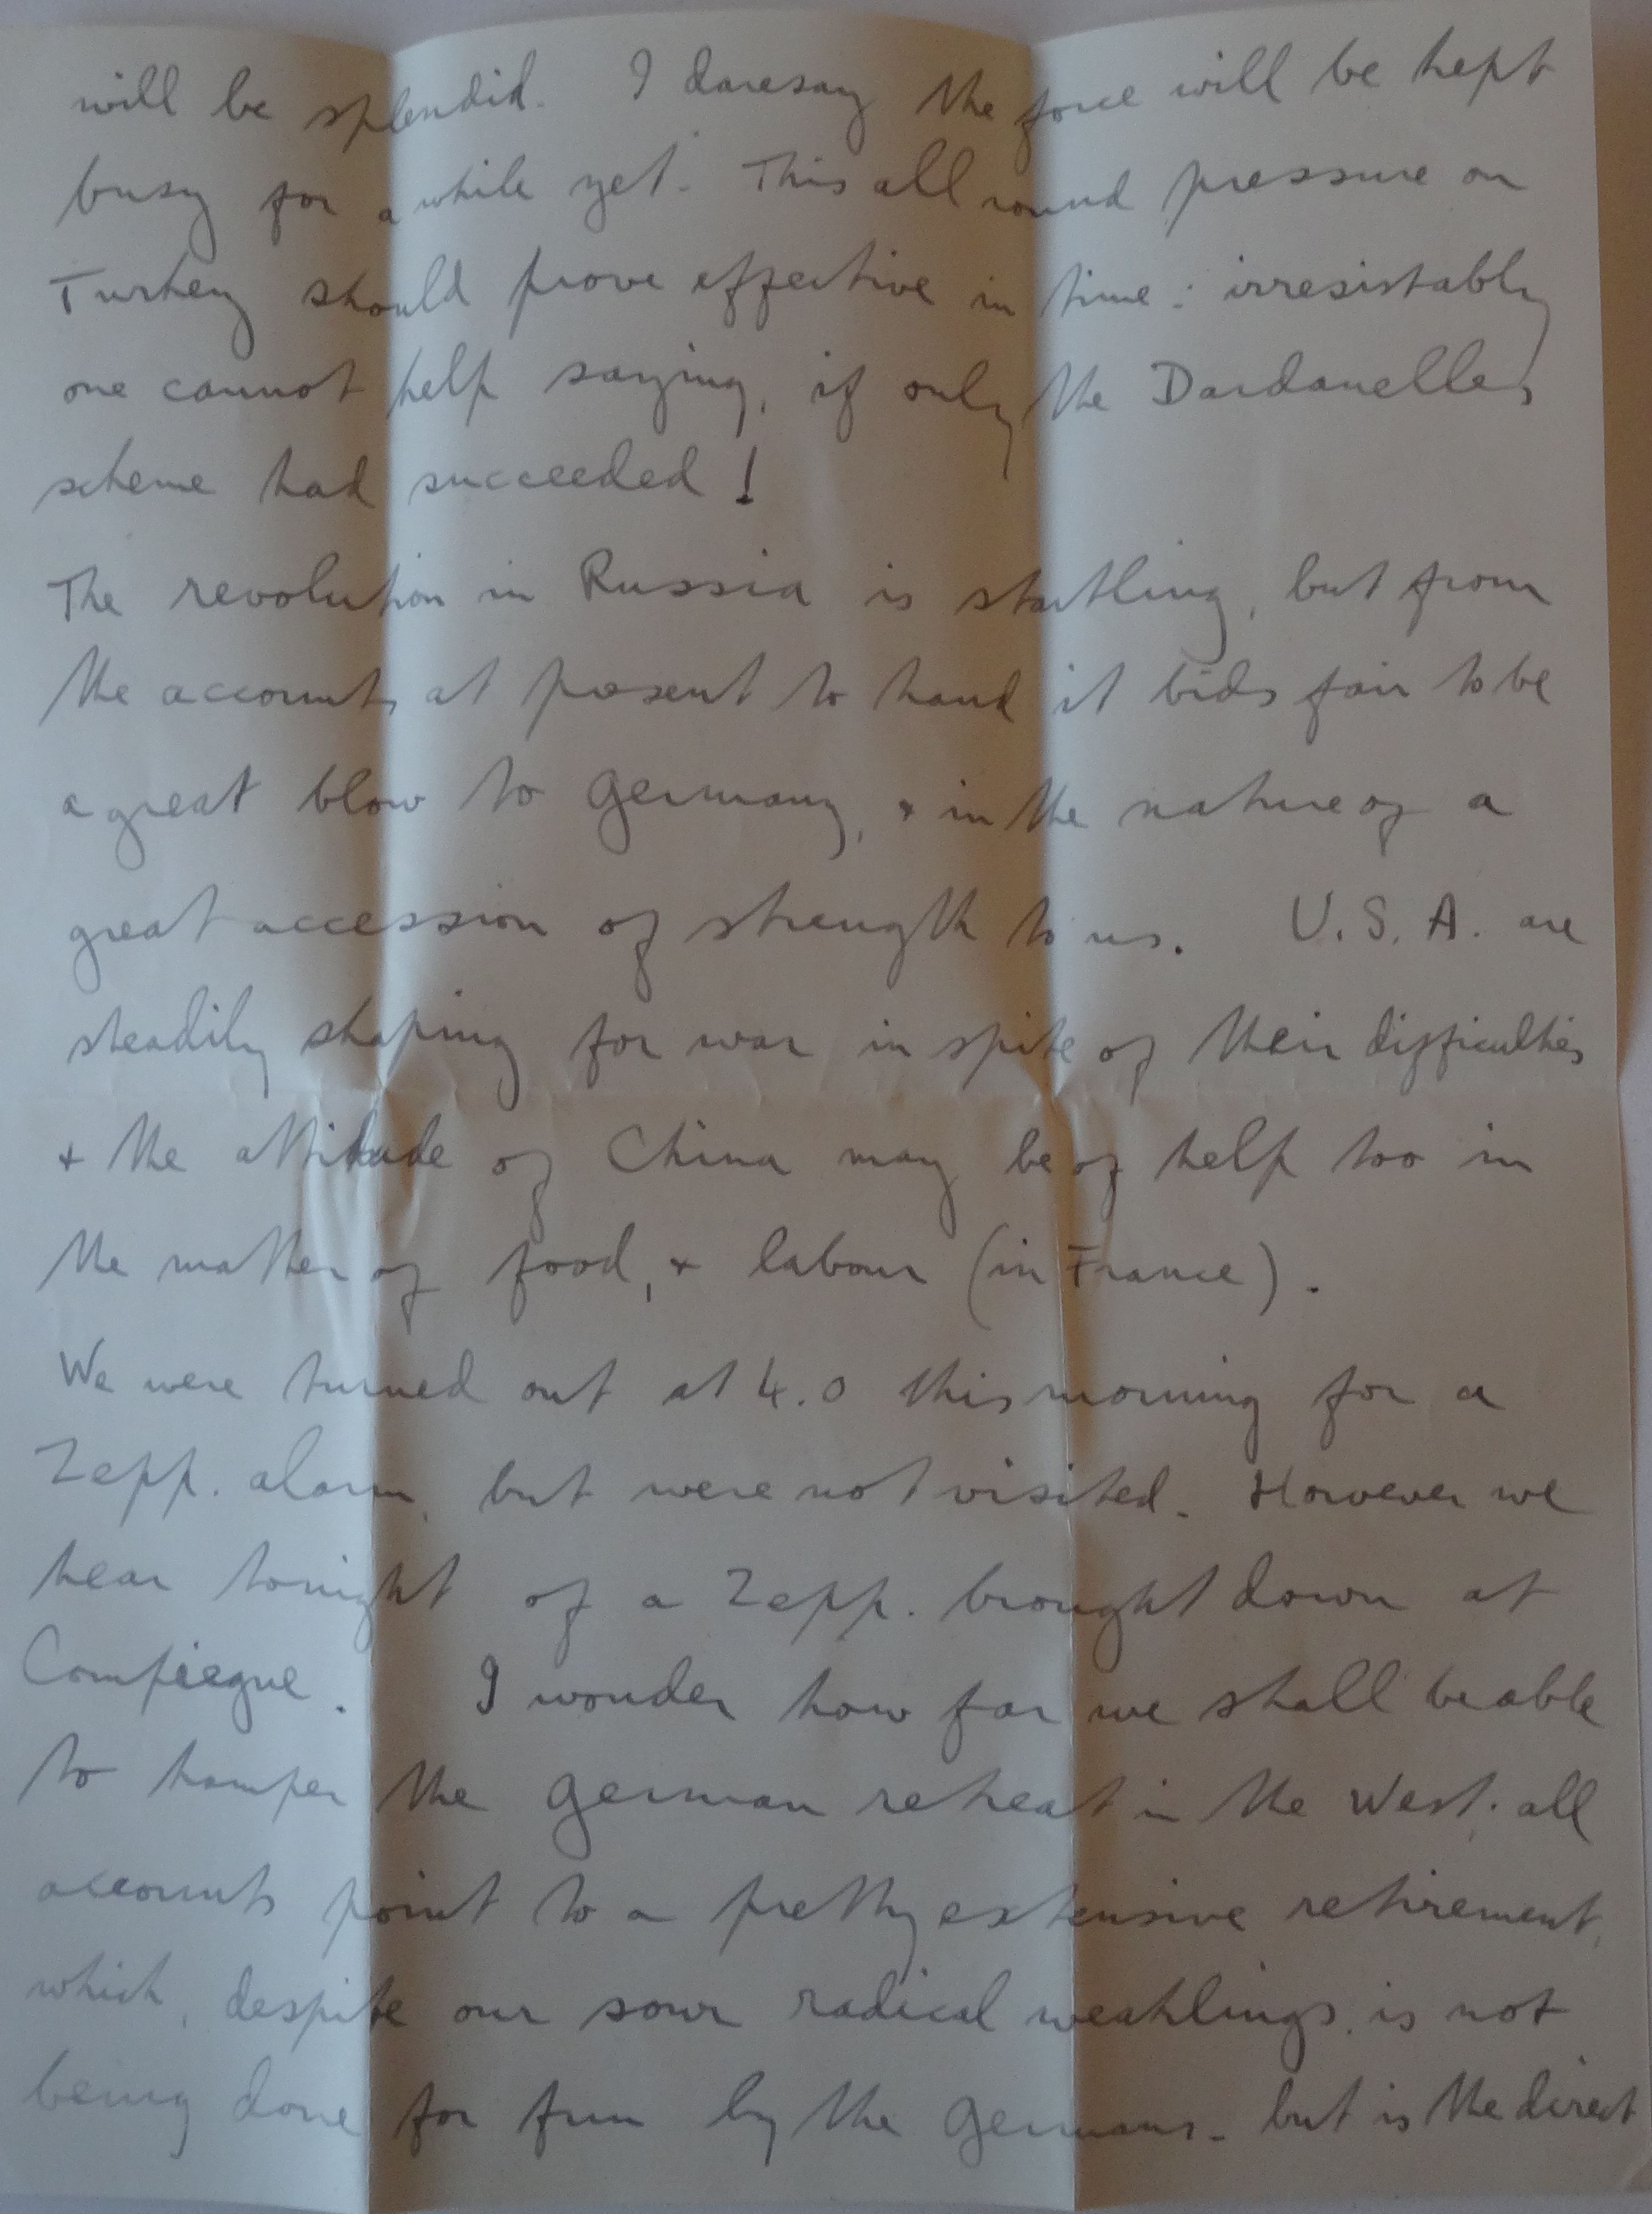 will be splendid. I daresay the force will be kept
busy for a while yet. This all round pressure on
Turkey should prove effective in time: irresistably
one cannot help saying, if only the Dardanelles
scheme had succeeded!
The revolution in Russia is startling, but from
the accounts at present to hand it bids fair to be
a great blow to Germany, + in the nature of a
great accession of strength to us. U.S.A. are
steadily shaping for war in spite of their difficulties
+ the attitude of China may be of help too in
the matter of food, + labour (in France).
We were turned out at 4.0 this morning for a
Zepp. alarm, but were not visited. However we
hear tonight of a Zepp. brought down at
Compiegne. I wonder how far we shall be able
to hamper the German retreat in the West; all
accounts point to a pretty extensive retirement,
which, despite our sour radical weaklings, is not
being done for fun by the Germans - but is the direct